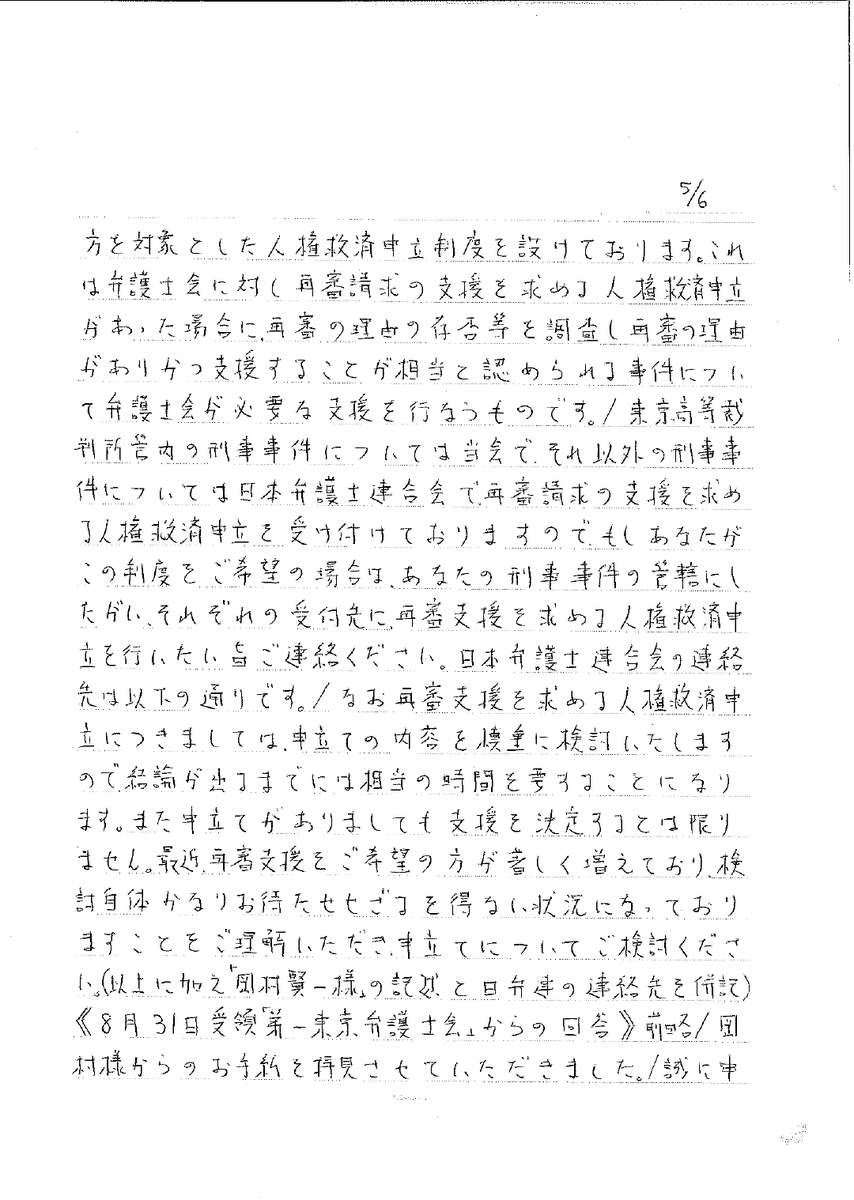 5/6
方を対象とした人権救済申立制度を設けております。これ
は弁護士会に対し再審請求の支援を求める人権救済申立
があった場合に、再審の理由の存否等を調査し再審の理由
がありかつ支援することが相当と認められる事件につい
て弁護士会が必要な支援を行なうものです。/東京高等裁
判所管内の刑事事件については当会で、それ以外の刑事事
件については日本弁護士連合会で、再審請求の支援を求め
る人権救済申立を受け付けておりますので、もしあなたが
この制度をご希望の場合は、あなたの刑事事件の管轄にし
たがい、それぞれの受付先に、再審支援を求める人権救済申
立を行いたい旨ご連絡ください。日本弁護士連合会の連絡
先は以下の通りです。/なお再審支援を求める人権救済申
立につきましては、申立ての内容を慎重に検討いたします
ので、結論が出るまでには相当の時間を要することになり
ます。また申立てがありましても支援を決定するとは限り
ません。最近、再審支援をご希望の方が著しく増えており、検
討自体かなりお待たせせざるを得ない状況になっており
ますことをご理解いただき、申立てについてご検討くださ
い。(以上に加え「岡村賢一様」の記述と日弁連の連絡先を併記)
《8月31日受領「第一東京弁護士会」からの回答》前略/岡
村様からのお手紙を拝見させていただきました。/誠に申